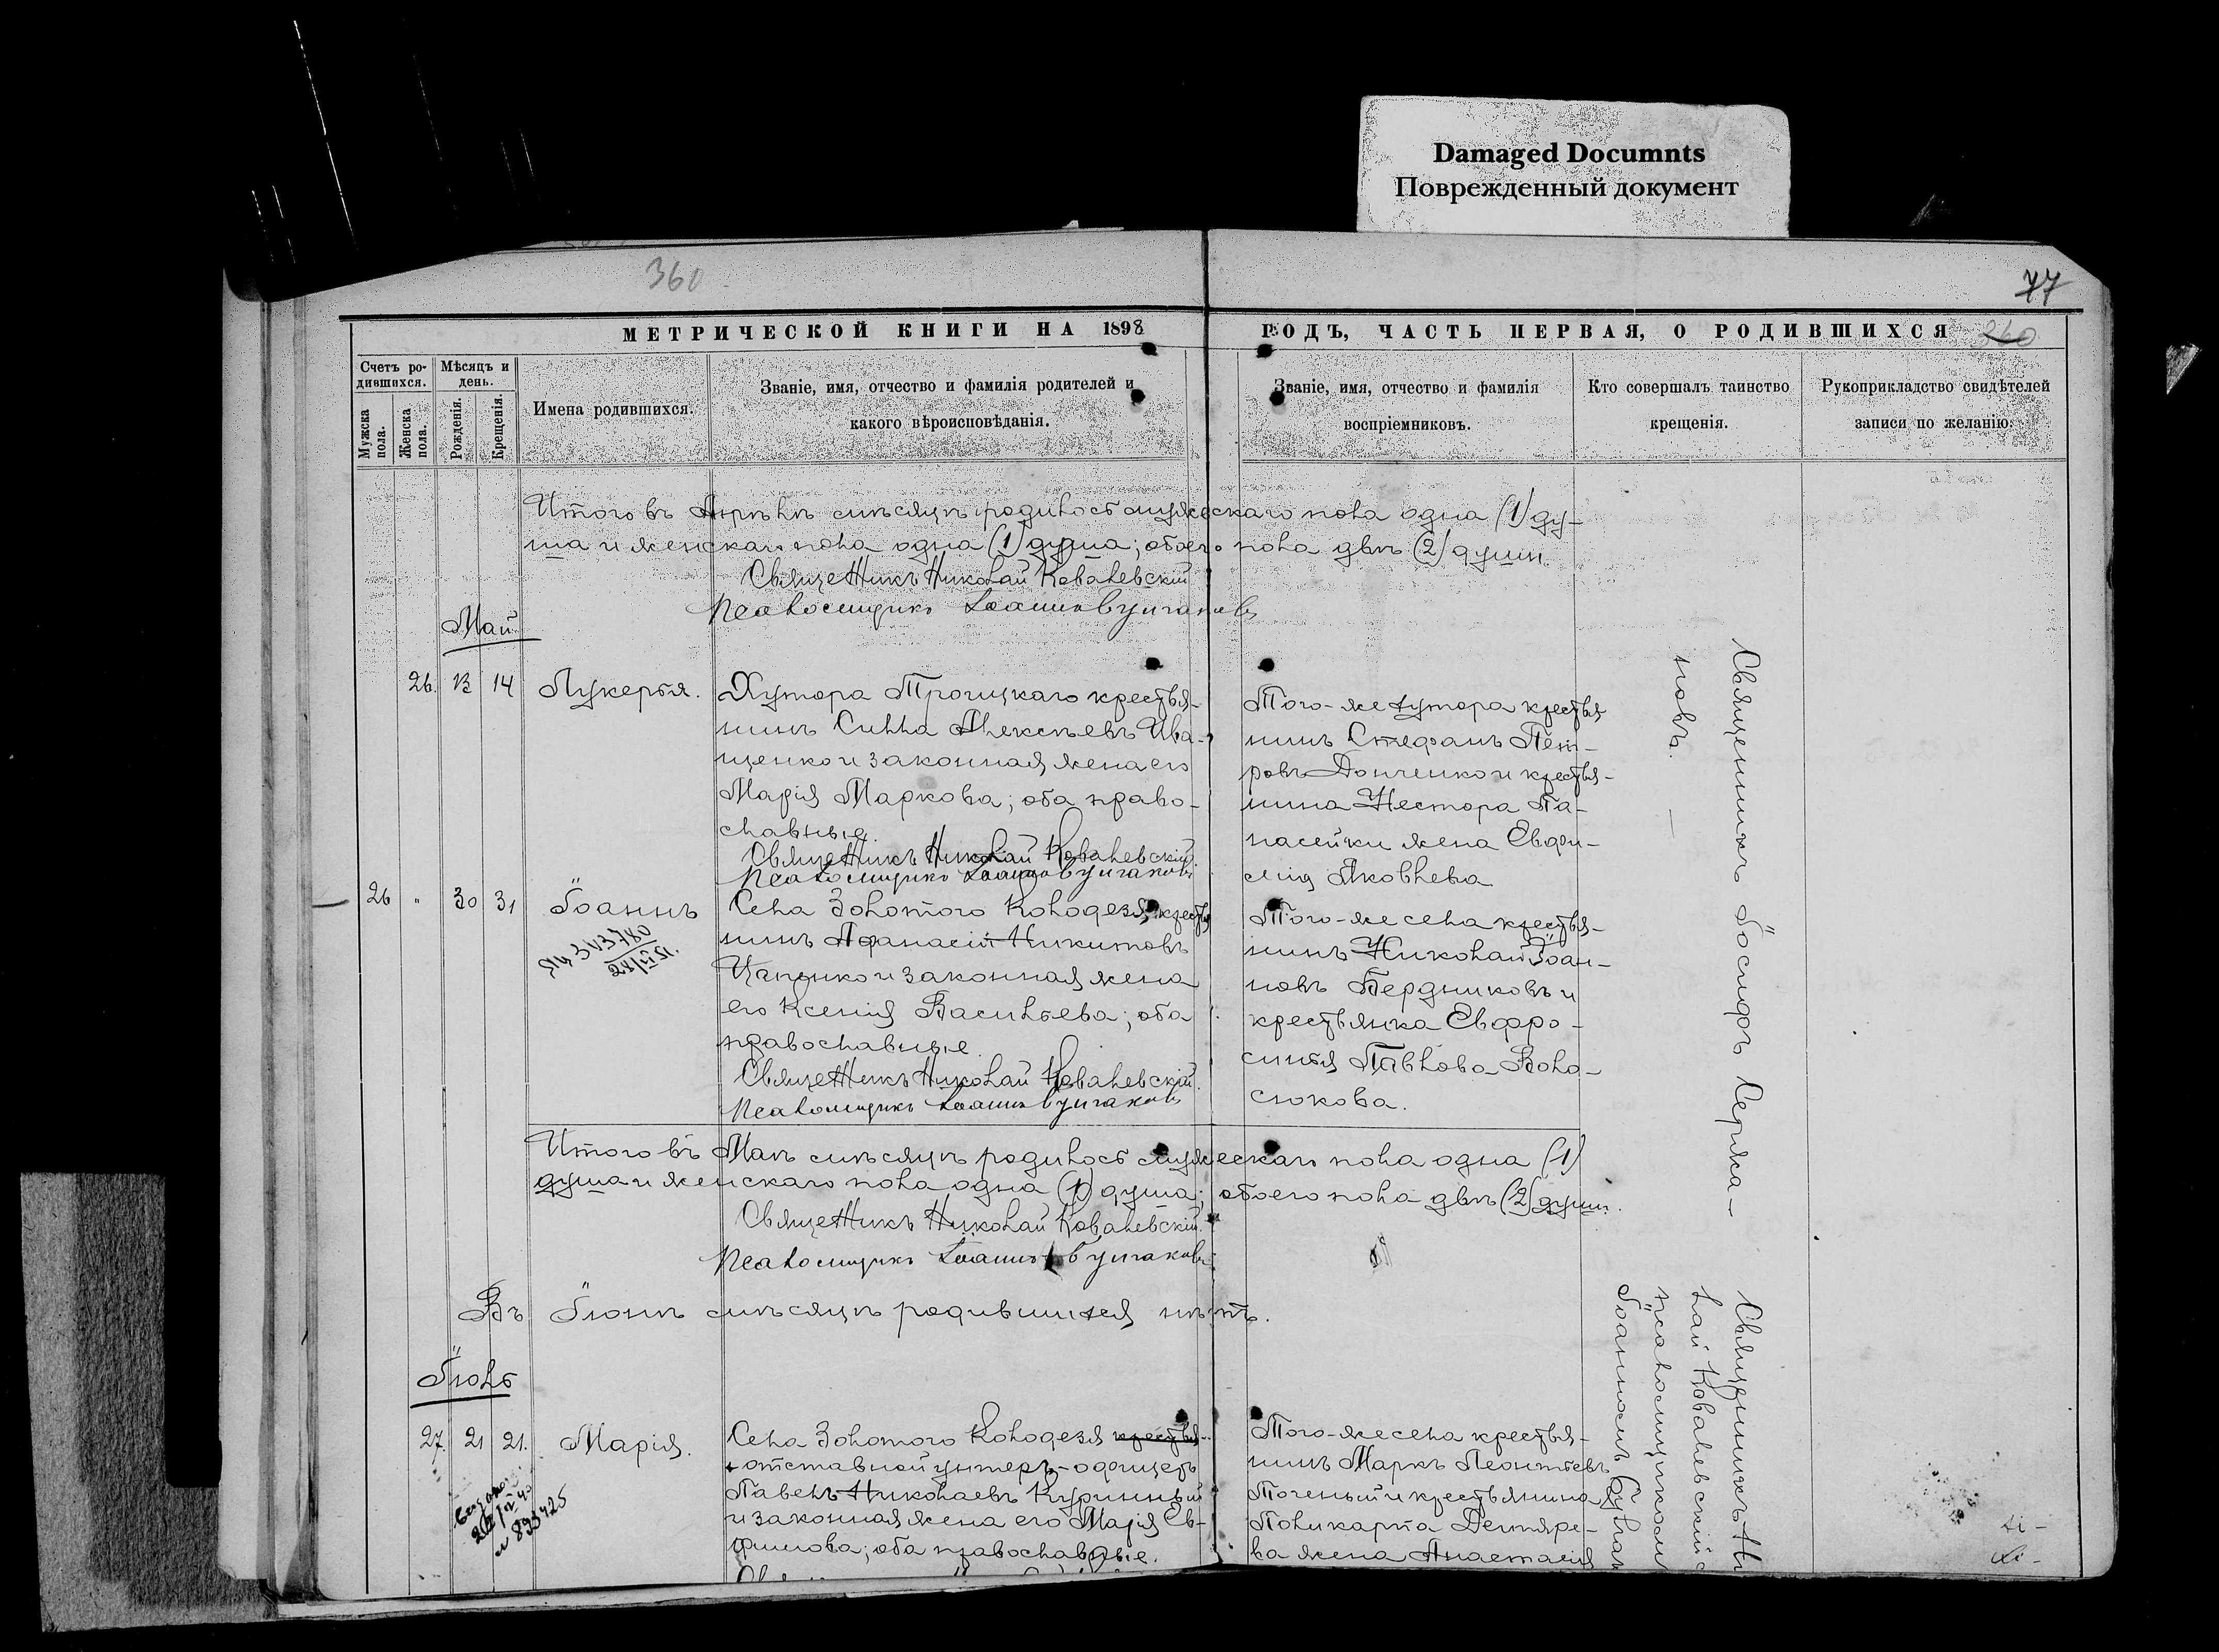 Damaged Documnts
Поврежденный документ
360
77
МЕТРИЧЕСКОЙ КНИГИ НА 1898 ГОДЪ, ЧАСТЬ ПЕРВАЯ, О РОДИВШИХСЯ
360
Счетъ ро-
дившихся.
Мужска пола.
Женска пола.
Мѣсяцъ и
день.
Рожденія.
Крещенія.
Имена родившихся.
Званіе, имя, отчество и фамилія родителей и
какого вѣроисповѣданія.
Званіе, имя, отчество и фамилія
воспріемниковъ.
Кто совершалъ таинство
крещенія.
Рукоприкладство свидѣтелей
записи по желанію.
Итого въ Апрѣлѣ мѣсяцѣ родилось мужескаго пола одна (1) ду-
ша и женскаго пола одна (1) душа; обоего пола двѣ (2) души.
Священникъ Николай Ковалевскій
Псаломщикъ Іоаннъ
Май
26. 13 14 Лукерья.
Хутора Троицкаго крестья-
нинъ Силла Алексѣевъ Ива-
щенко и законная жена его
Марія Маркова; оба право-
славные.
Священникъ Николай Ковалевскій.
Псаломщикъ Іоаннъ
Того-же хутора крестья-
нинъ Стефанъ Пет-
ровъ Донченко и крестья-
нина Нестора Па-
насейки жена Евфи-
мія Яковлева
Священникъ Іосифъ Держа-
новъ. —
26 " 30 31 Іоаннъ
Села Золотого Колодезя, крестья
нинъ Афанасій Никитовъ
Цапенко и законная жена
его Ксенія Васильева; оба
православные.
Священникъ Николай Ковалевскій.
Псаломщикъ Іоаннъ
Того-же села крестья-
нинъ Николай Іоан-
новъ Бердниковъ и
крестьянка Евфро-
синія Павлова Воло-
сюкова.
Итого въ Маѣ мѣсяцѣ родилось мужескаго пола одна (1)
душа и женскаго пола одна (1) душа; обоего пола двѣ (2) души.
Священникъ Николай Ковалевскій.
Псаломщикъ Іоаннъ
Въ Іюнѣ мѣсяцѣ родившихся нѣтъ.
Іюль
27. 21 21. Марія.
893425
Села Золотого Колодезя крестья-
отставной унтеръ-офицеръ
Павелъ Николаевъ Куринный
и законная жена его Марія Ев-
фимова; оба православные.
Того-же села крестья-
нинъ Маркъ Леонтьевъ
и крестьянина
Поликарпа Дегтяре-
ва жена Анастасія
Священникъ Ни
лай Ковалевскій с
псаломщикомъ
Іоанномъ